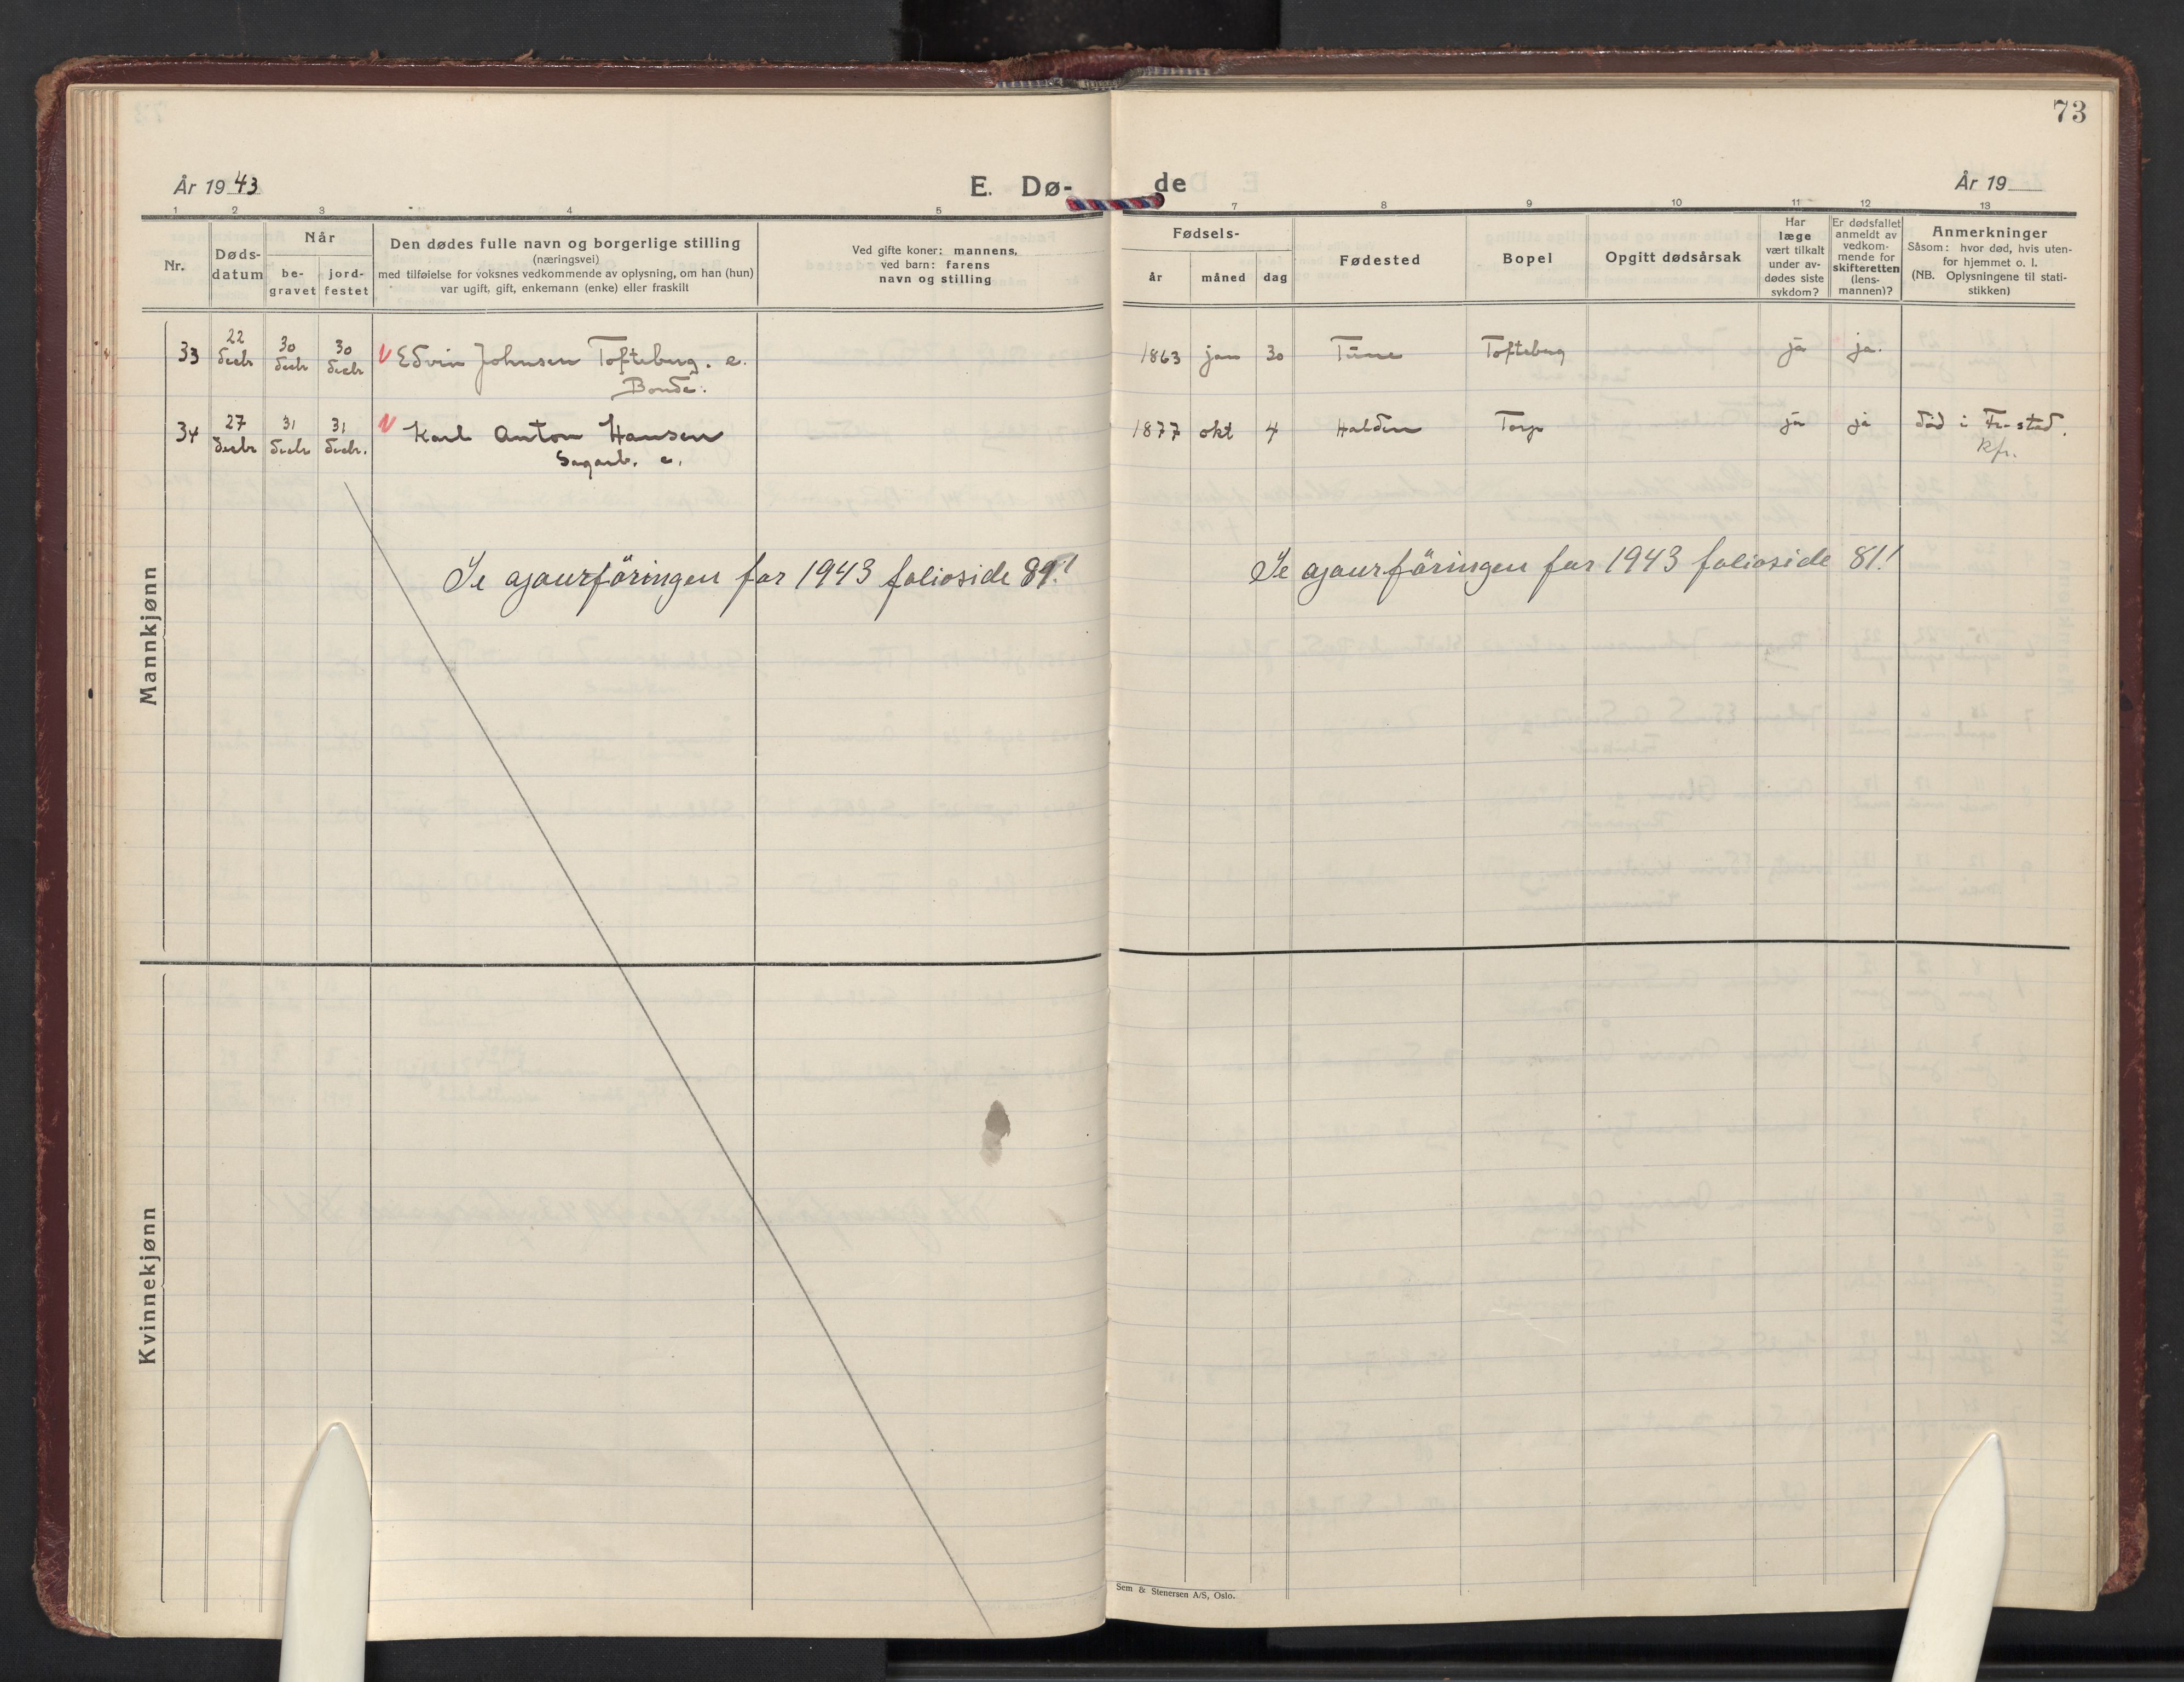 73
År 1943
E. Dø-
de
År 19
1 2 3 4 5 7 8 9 10 11 12 13
Nr.
Døds-
datum
Når
be-
gravet
jord-
festet
Den dødes fulle navn og borgerlige stilling
(næringsvei)
med tilføielse for voksnes vedkommende av oplysning, om han (hun)
var ugift, gift, enkemann (enke) eller fraskilt
Ved gifte koner: mannens,
ved barn: farens
navn og stilling
Fødsels-
år måned dag
Fødested
Bopel
Opgitt dødsårsak
Har
læge
vært tilkalt
under av-
dødes siste
sykdom?
Er dødsfallet
anmeldt av
vedkom-
mende for
skifteretten
(lens-
mannen)?
Anmerkninger
Såsom: hvor død, hvis uten-
for hjemmet o. l.
(NB. Oplysningene til stati-
stikken)
Mannkjønn
33 22 decbr 30 decbr 30 decbr Edvin Johnsen Tofteberg. e. 1863 jan 30 Tune Tofteberg ja ja.
Bonde.
34 27 decbr 31 decbr 31 decbr. Karl Anton Hansen 1877 okt 4 Halden Torp ja ja død i Fr-stad.
Sagarb. e. kfr.
Se ajourföringen for 1943 folioside 81!
Se ajourföringen for 1943 folioside 81!
Kvinnekjønn
Sem & Stenersen A/S, Oslo.